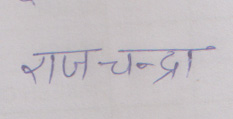 राज चन्द्रा